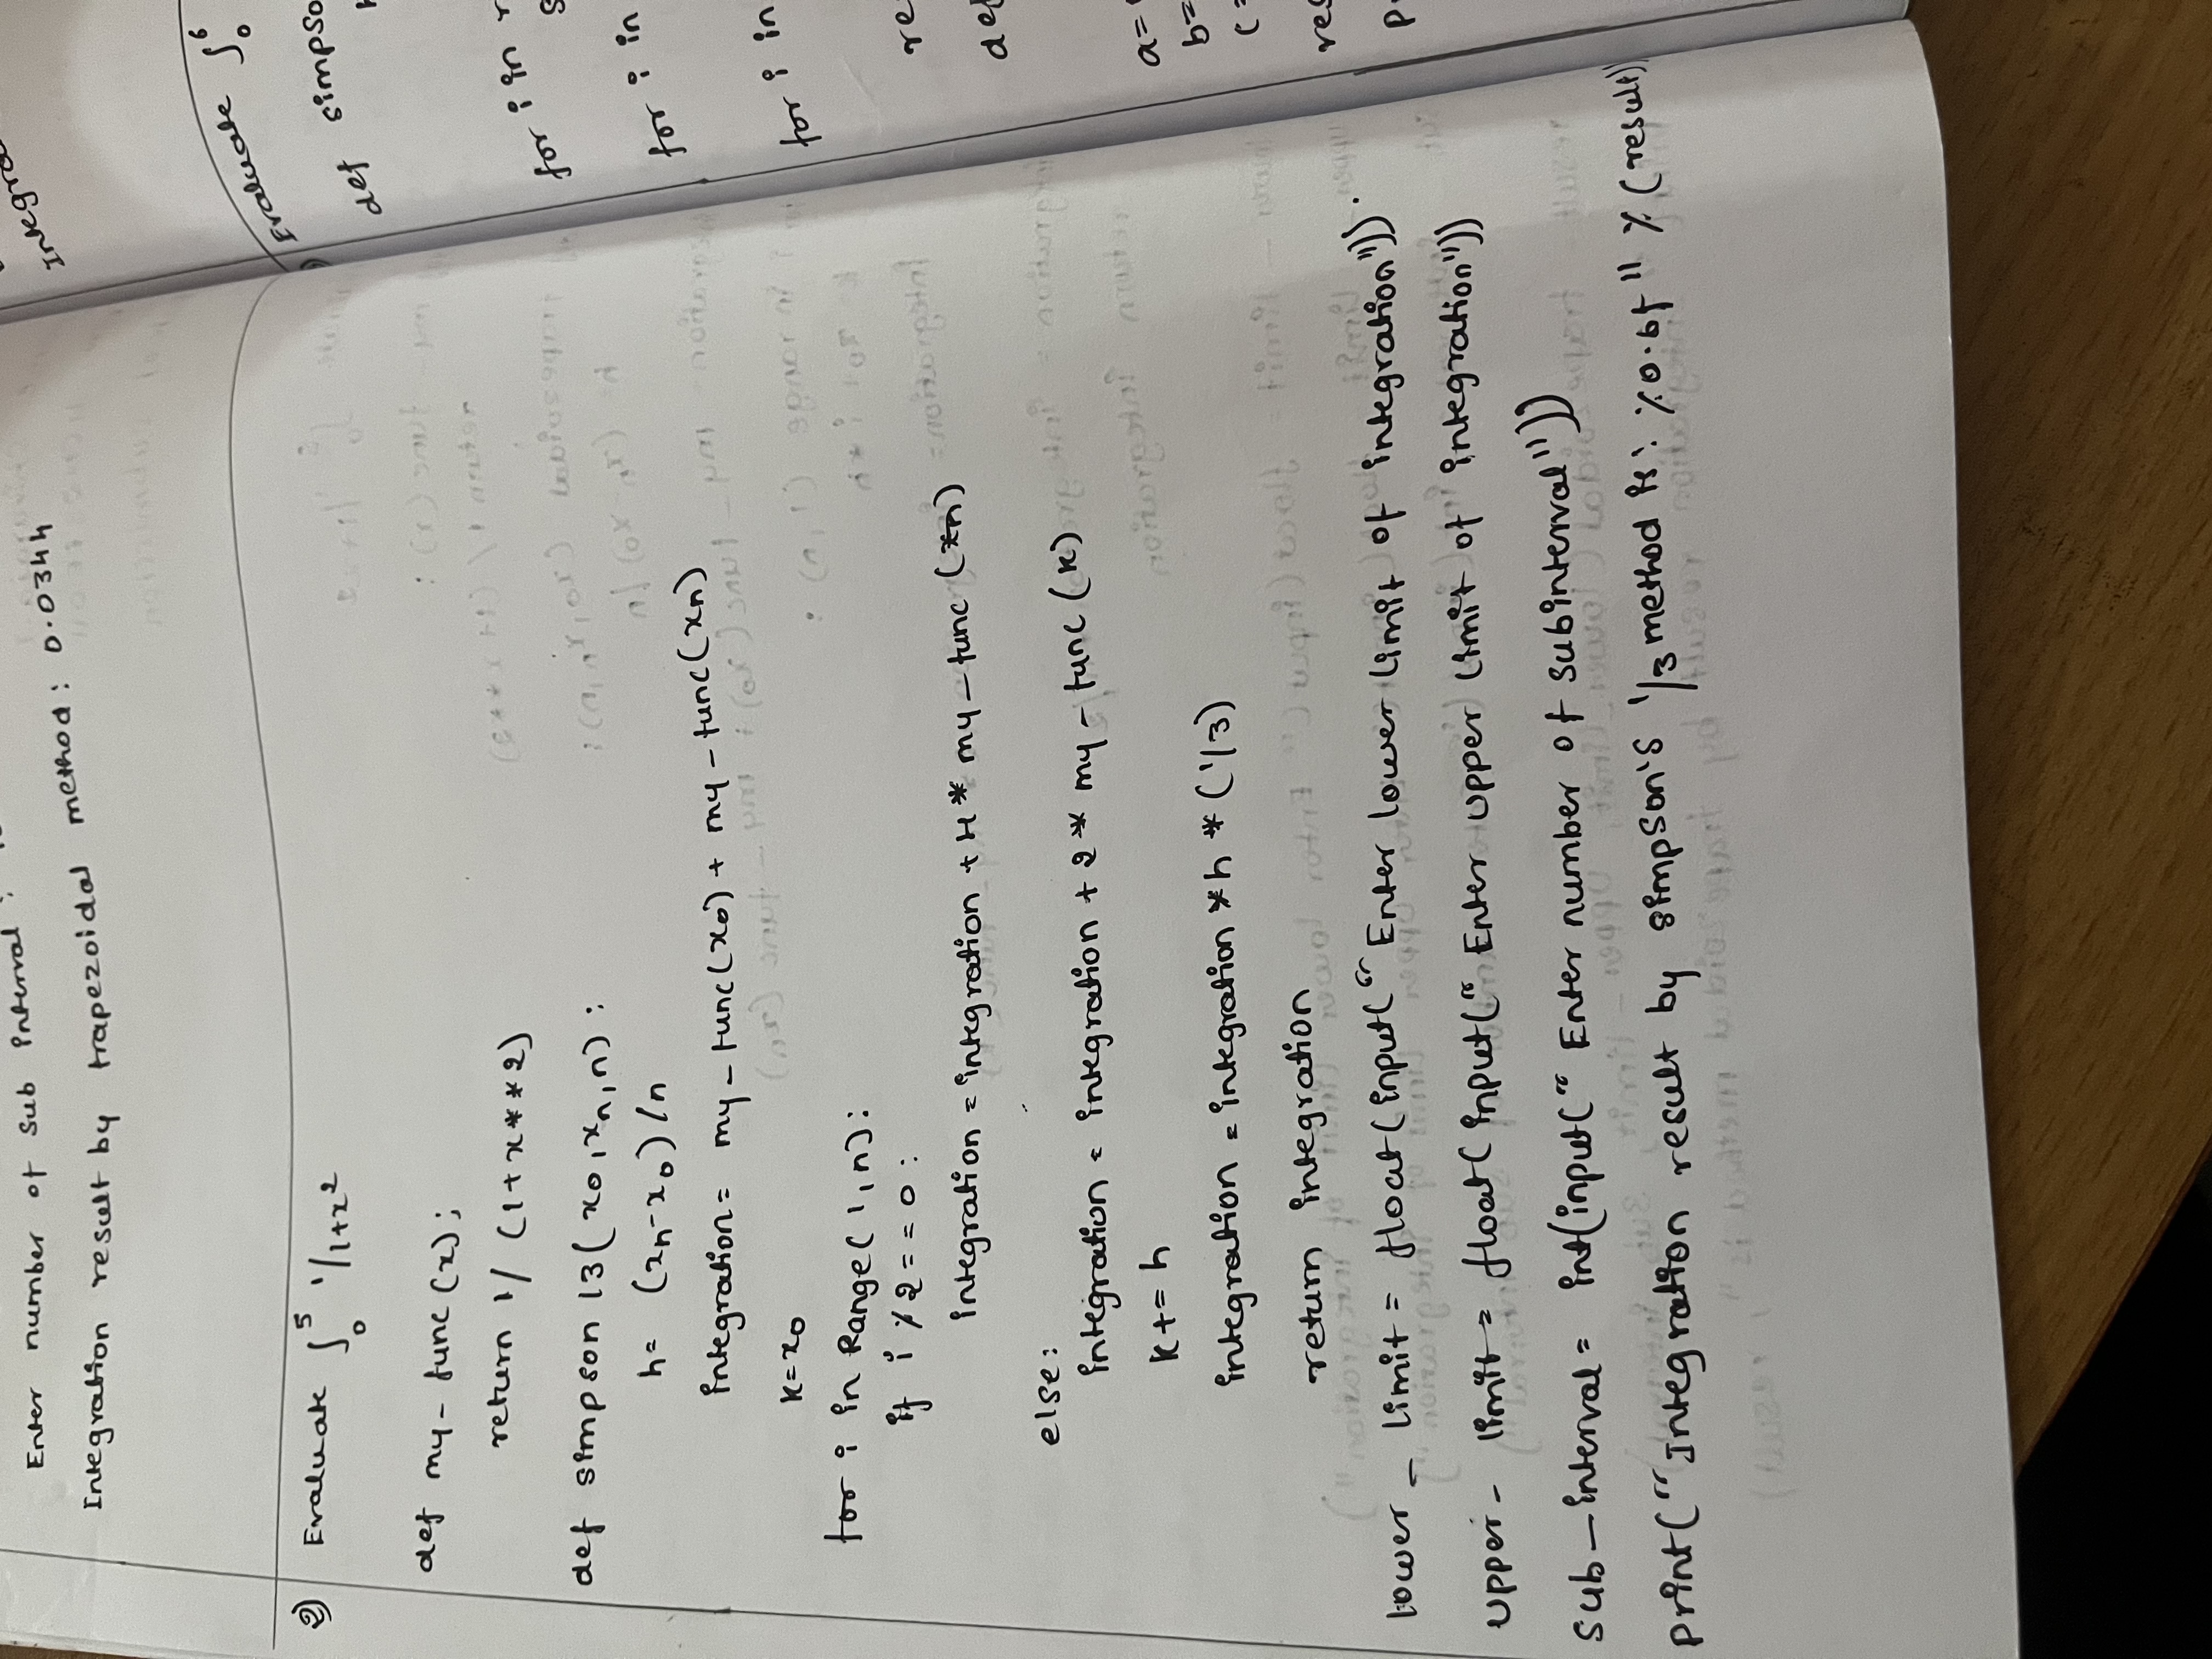 Enter number of Sub interval :
Integration result by trapezoidal method : 0.0344
2) Evaluate ∫₀⁵ 1/1+x²
def my-func(x);
return 1/ (1+x**2)
def simpson 13(x0,xn,n) :
h= (xn-x0)/n
integration= my-func(x0) + my-func(xn)
k=x0
for i in Range(1,n):
if i %2==0 :
integration = integration + 4* my-func (xn)
else:
integration = integration + 2* my-func (k)
k+= h
integration = integration *h * (1/3)
return integration
lower_ limit = float(input(“Enter lower limit of integration")).
upper- limit= float( input(“ Enter upper limit of integration"))
sub-interval= int(input(“ Enter number of subinterval"))
print(“Integration result by simpson's 1/3 method is: %0.6f" % (result))
Integra
Evaluate ∫₀⁶
def simpso
for i in r
for i in
for i in
re
def
a=
b=
c=
res
p